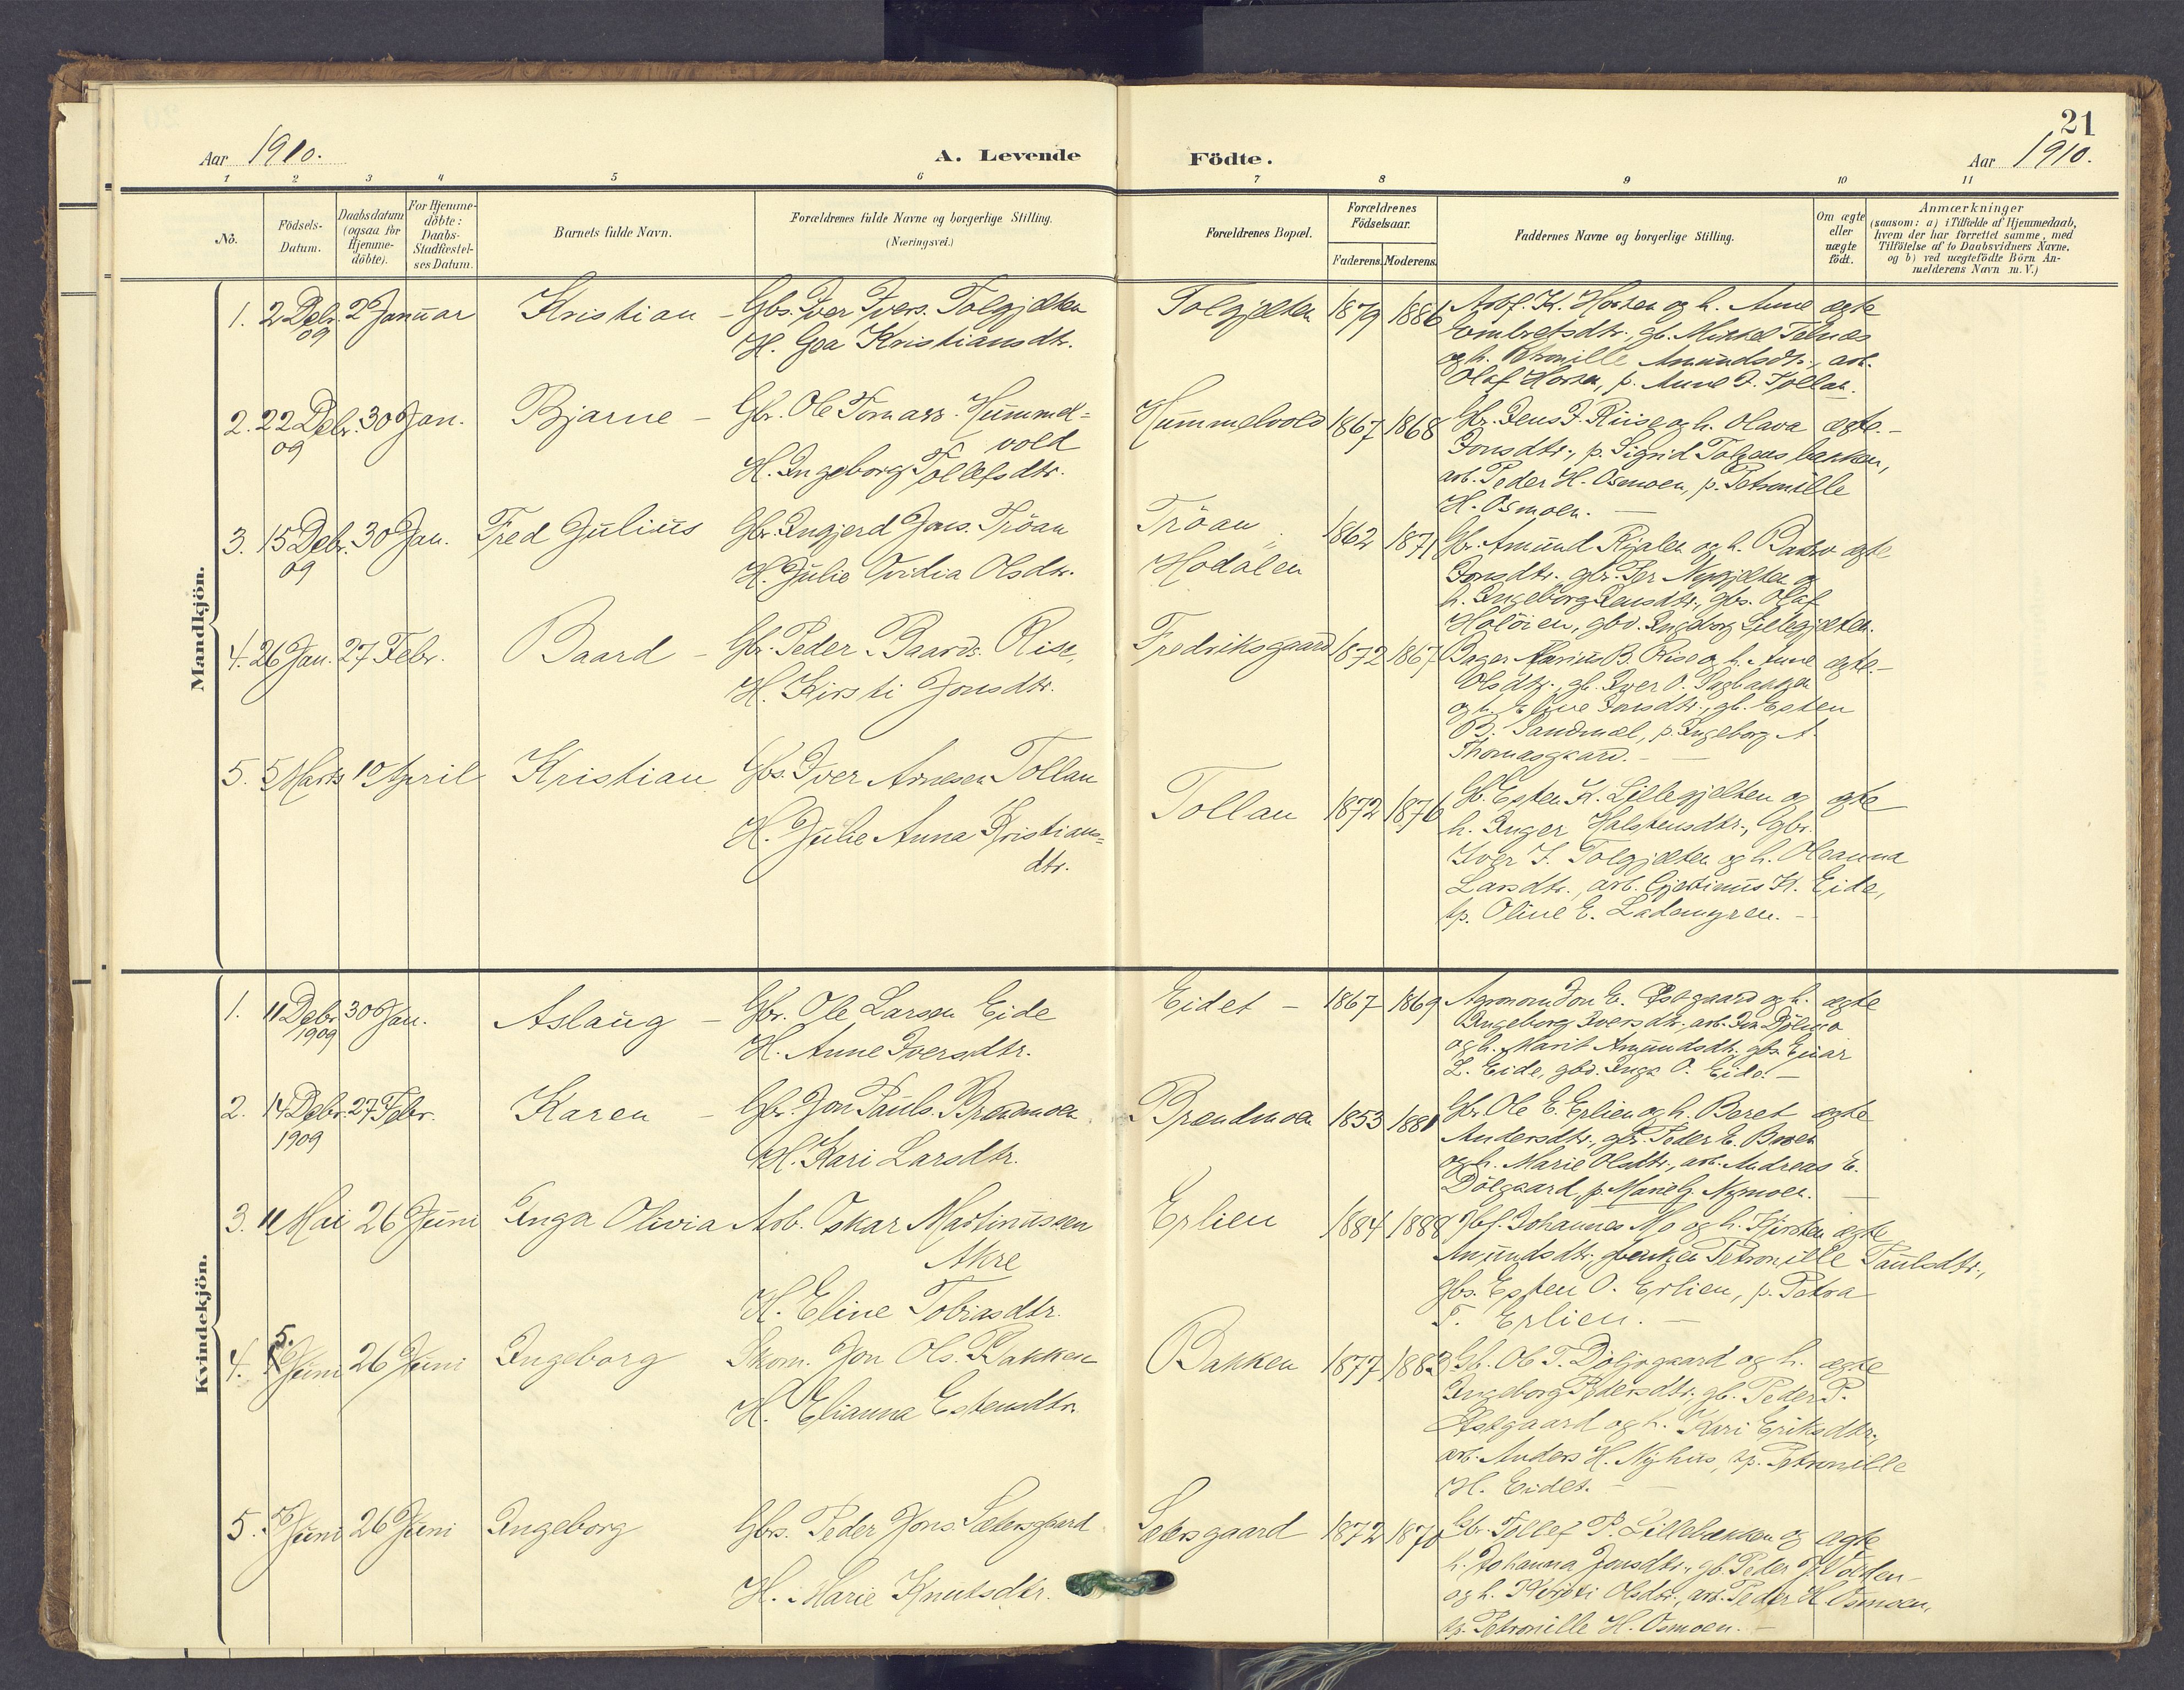 21
Aar 1910.
A. Levende
Födte.
Aar 1910.
1 2 3 4 5 6 7 8 9 10 11
No.
Födsels-
Datum.
Daabsdatum
(ogsaa for
Hjemme-
döbte).
For Hjemme-
döbte:
Daabs-
Stadfæstel-
ses Datum.
Barnets fulde Navn.
Forældrenes fulde Navne og borgerlige Stilling.
(Næringsvei.)
Forældrenes Bopæl.
Forældrenes
Födselsaar.
Faderens.
Moderens.
Faddernes Navne og borgerlige Stilling.
Om ægte
eller
uægte
födt.
Anmærkninger
(saasom: a) i Tilfælde af Hjemmedaab,
hvem der har forrettet samme, med
Tilföielse af to Daabsvidners Navne.
og b) ved uægtefödte Börn An-
melderens Navn m.V.)
Mandkjön.
1. 2 Debr. 09 2 Januar Kristian – Gbs. Iver Ivers. Tolgjelten
H. Goa Kristiansdtr.
Tolgjelten 1879 1886 K. Horten og h. Anne ægte
Embretsdtr., gb. Mikkel Telnæs
og h. Petronille Amundsdtr., arb.
Olaf Horten, p. Anne I. Tollan.
2. 22 Debr. 09 30 Jan. Bjarne – Gbr. Ole Tomass. Hummel=
vold
H. Ingeborg Tollefsdtr.
Hummelvold 1867 1868 Gbr. Jens J. Riise og h. Olava ægte. –
Jonsdtr., p. Sigrid Tolgensbakken,
arb. Peder H. Osmoen, p. Petronille
H. Osmoen. –
3. 15 Debr. 09 30 Jan. Fred Julius Gbr. Ingjerd Jons. Tröan
H. Julie Ovidia Olsdtr.
Tröan
Hodalen 1862 1871 Gbr. Amund Rijalen og h. ægte
Jonsdtr. gbr. Per Nygjelten og
h. Ingeborg Jensdtr., gbs. Olaf
Holöien, gbd. Ingeborg Lillegjelten.
4. 26 Jan. 27 Febr. Baard – Gbr. Peder Baards. Rise,
H. Kirsti Jonsdtr.
Fredriksgaard 1872 1867 Bager Marius B. Rise og h. Anne ægte –
Olsdtr., gb. Iver O.
og h. Eline Jonsdtr., gb. Esten
B. Sandmæl, p. Ingeborg A.
Thomasgaard. –
5. 5 Marts 10 April Kristian Gbs. Iver Arnesen Tollan
H. Julie Anna Kristians=
dtr.
Tollan 1872 1876 Gb. Esten K. Lillegjelten og ægte
h. Inger Halstensdtr., gbr.
Iver I. Tolgjelten og h. Oleanna
Larsdtr., arb. Gjertinius K. Eide,
p. Oline E. Lademgren. –
Kvindekjön.
1. 11 Debr. 1909 30 Jan. Aslaug – Gbr. Ole Larsen Eide
H. Anne Iversdtr.
Eidet – 1867 1869 Agronom Jon E. Östgaard og h. ægte
Ingeborg Iversdtr. arb. Dölmo
og h. Marit Amundsdtr. gbs. Einar
L. Eide, gbd. Inga O. Eide. –
2. 14 Debr. 1909 27 Febr. Karen – Gbr. Jon Pauls. Brendmoen
H. Kari Larsdtr.
Brendmoen 1853 1881 Gbr. Ole E. Erlien og h. Beret ægte
Andersdtr., gbr. Peder E.
og h. Marie Olsdtr., arb. Andreas E.
Dölgaard, p. Marie G. Nymoen. –
3. 11 Mai 26 Juni Inga Olivia Arb. Oskar Martinussen
Akre
H. Eline Tobiasdtr.
Erlien 1884 1888 Johannes Mo og h. Kjersten ægte
Amundsdtr., Petronille Paulsdtr.,
Gbs. Esten O. Erlien, p. Petra
T. Erlien. –
4. 5. Juni 26 Juni Ingeborg Skom. Jon Ols. Bakken
H. Elianna Estensdtr.
Bakken 1877 1883 Gb. Ole T. Döljegaard og h. ægte
Ingeborg Pedersdtr. gb. Peder P.
Östgaard og h. Kari Eriksdtr.,
arb. Anders H. Nyhus, p. Petronille
H. Eidet. –
5. 5 Juni 26 Juni Ingeborg Gbrs. Peder Jons. Sætersgaard
H. Marie Knutsdtr.
Sætersgaard 1872 1870 Gbr. Tollef P. Lillebækken og ægte
h. Johanna Jonsdtr., gb. Peder J. Volden
og h. Kirsti Olsdtr., arb. Peder H. Osmoen,
p. Petronille H. Osmoen. –